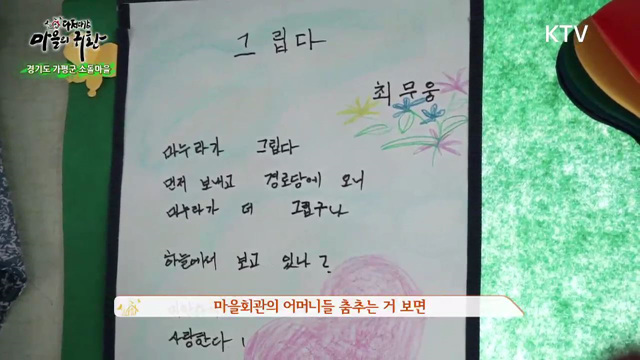 마을의 귀환
경기도 가평군 소돌마을
KTV
그립다
최무웅
마누라가 그립다
먼저 보내고 경로당에 오니
마누라가 더 그립구나
하늘에서 보고 있나?
마을회관의 어머니들 춤추는 거 보면
사랑한다!